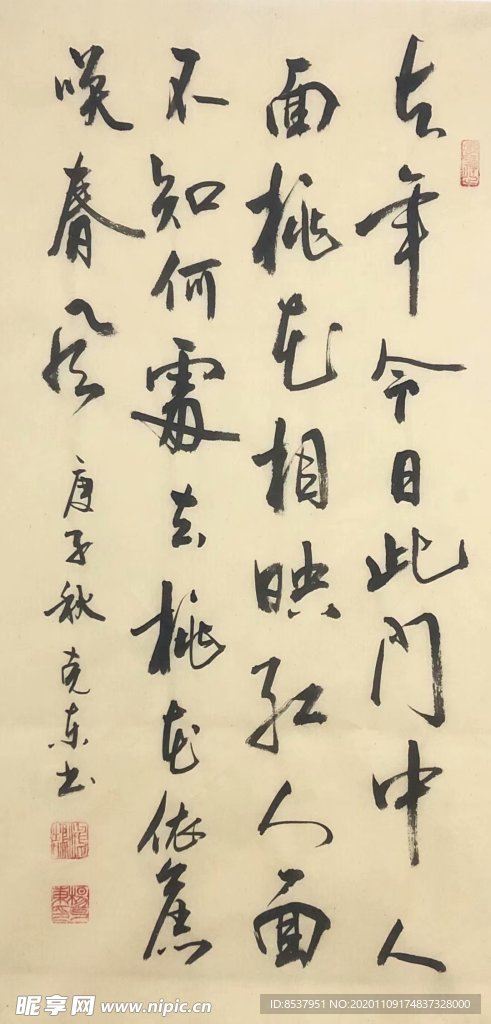 去年今日此門中人
面桃花相映紅人面
不知何處去桃花依舊
咲春風 庚子秋克東书
昵享网 www.nipic.cn
ID:8537951 NO:20201109174837328000